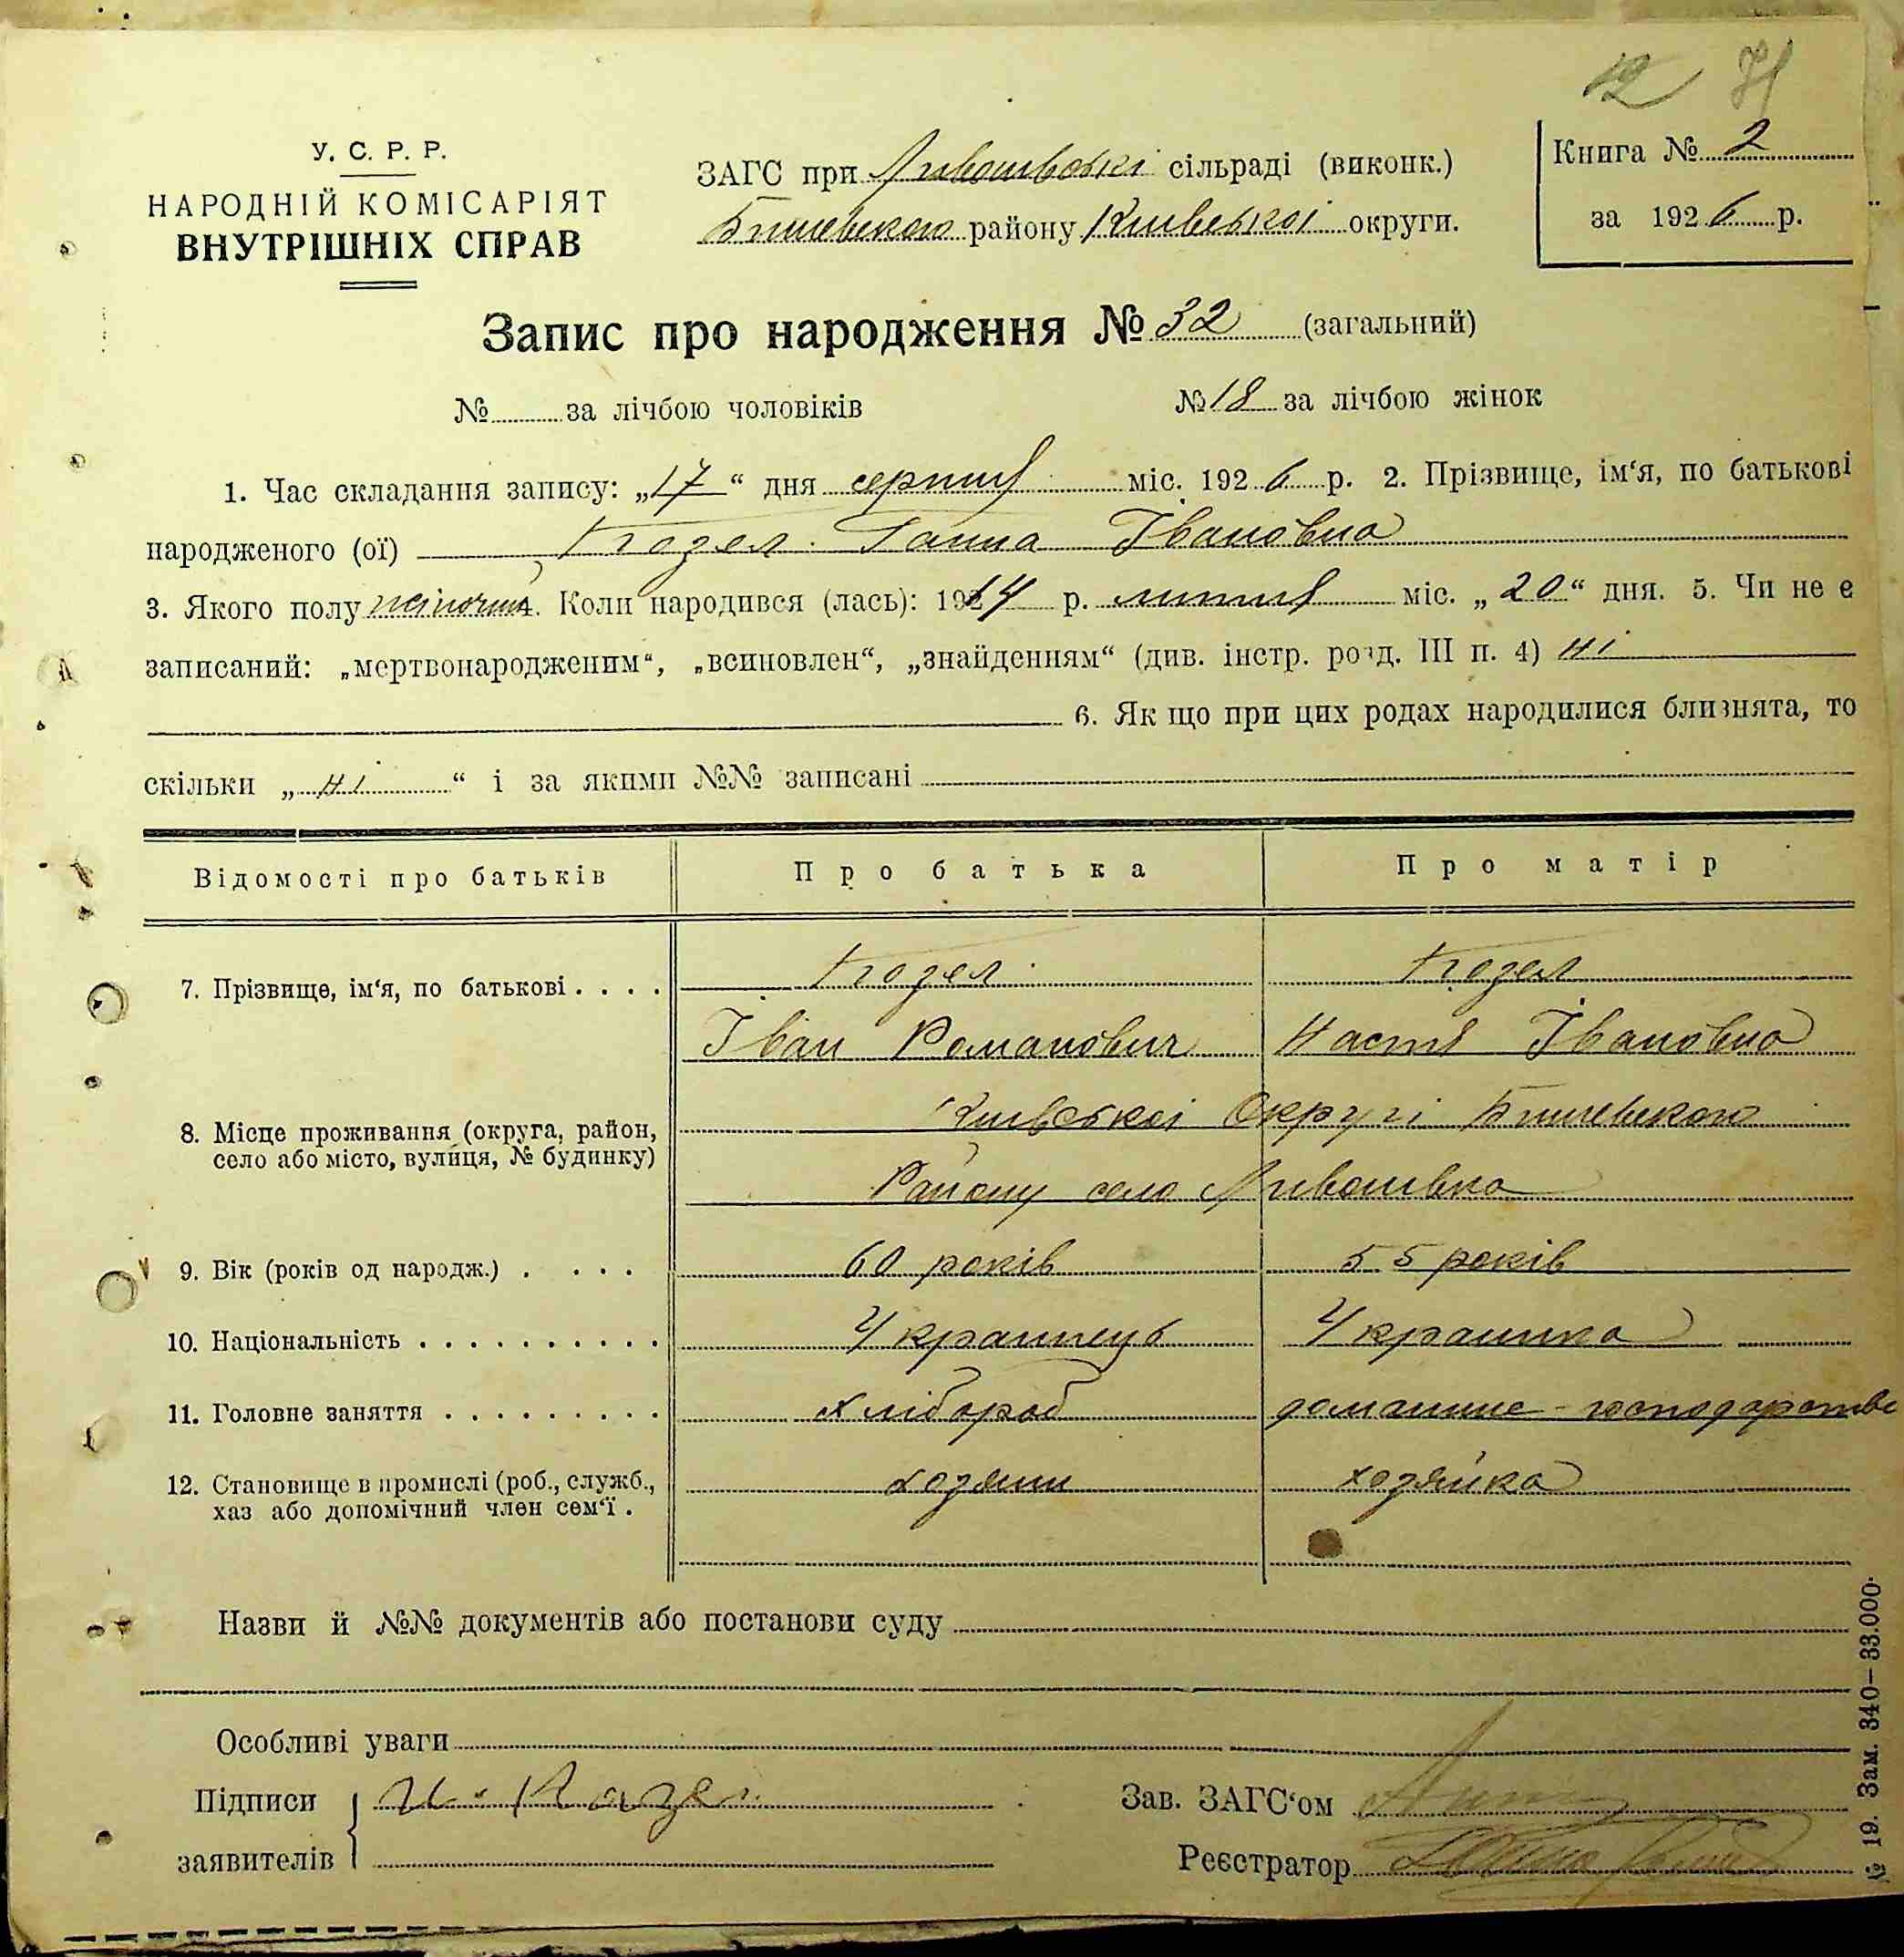 12 71
У. С. Р. Р.
НАРОДНІЙ КОМІСАРІЯТ
ВНУТРІШНІХ СПРАВ
ЗАГС при Лишовські сільраді (виконк.)
Бишевского району Київської округи.
Книга № 2
за 1926 р.
Запис про народження № 32 (загальний)
№ за лічбою чоловіків № 18 за лічбою жінок
1. Час складання запису: „17“ дня серпня міс. 1926 р. 2. Прізвище, ім‘я, по батькові
народженого (ої) Козел Ганна Івановна
3. Якого полу жіночий. Коли народився (лась): 1914 р. липня міс. „20“ дня. 5. Чи не є
записаний: „мертвонародженим“, „всиновлен“, „знайденням“ (див. інстр. розд. III п. 4) ні
6. Як що при цих родах народилися близнята, то
скільки „ні“ і за якими №№ записані
Відомості про батьків Про батька Про матір
7. Прізвище, ім‘я, по батькові . . . . Козел Козел
Іван Романович Настя Івановна
8. Місце проживання (округа, район,
село або місто, вулиця, № будинку)
Київської Округі Бишевского
Району село
9. Вік (років од народж.) . . . . 60 років 55 років
10. Національність . . . . . . . . . . Українець Українка
11. Головне заняття . . . . . . . . . Хлібороб домашне-господарство
12. Становище в промислі (роб., служб.,
хаз або допомічний член сем‘ї .
хозяин хозяйка
Назви й №№ документів або постанови суду
Особливі уваги
Підписи
заявителів
И. Козел
Зав. ЗАГС‘ом
Реєстратор
№ 19. Зам. 340–33.000.